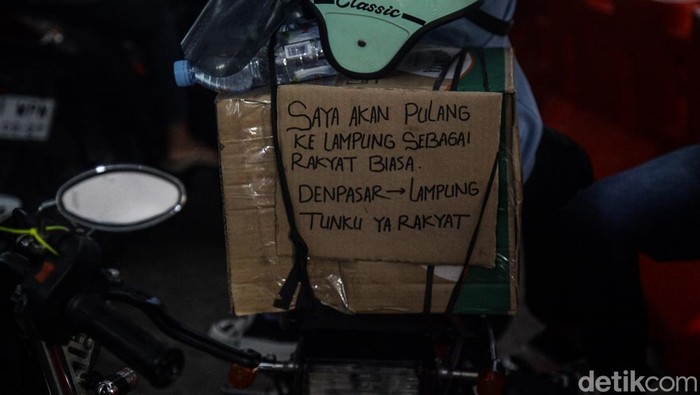 Classic
SAYA AKAN PULANG
KE LAMPUNG SEBAGAI
RAKYAT BIASA.
DENPASAR → LAMPUNG
TUNKU YA RAKYAT
detikcom